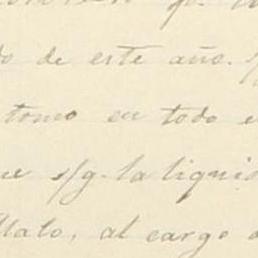 do de este año.
tomo en todo e
ue s/g. la liquid
llato, al cargo d